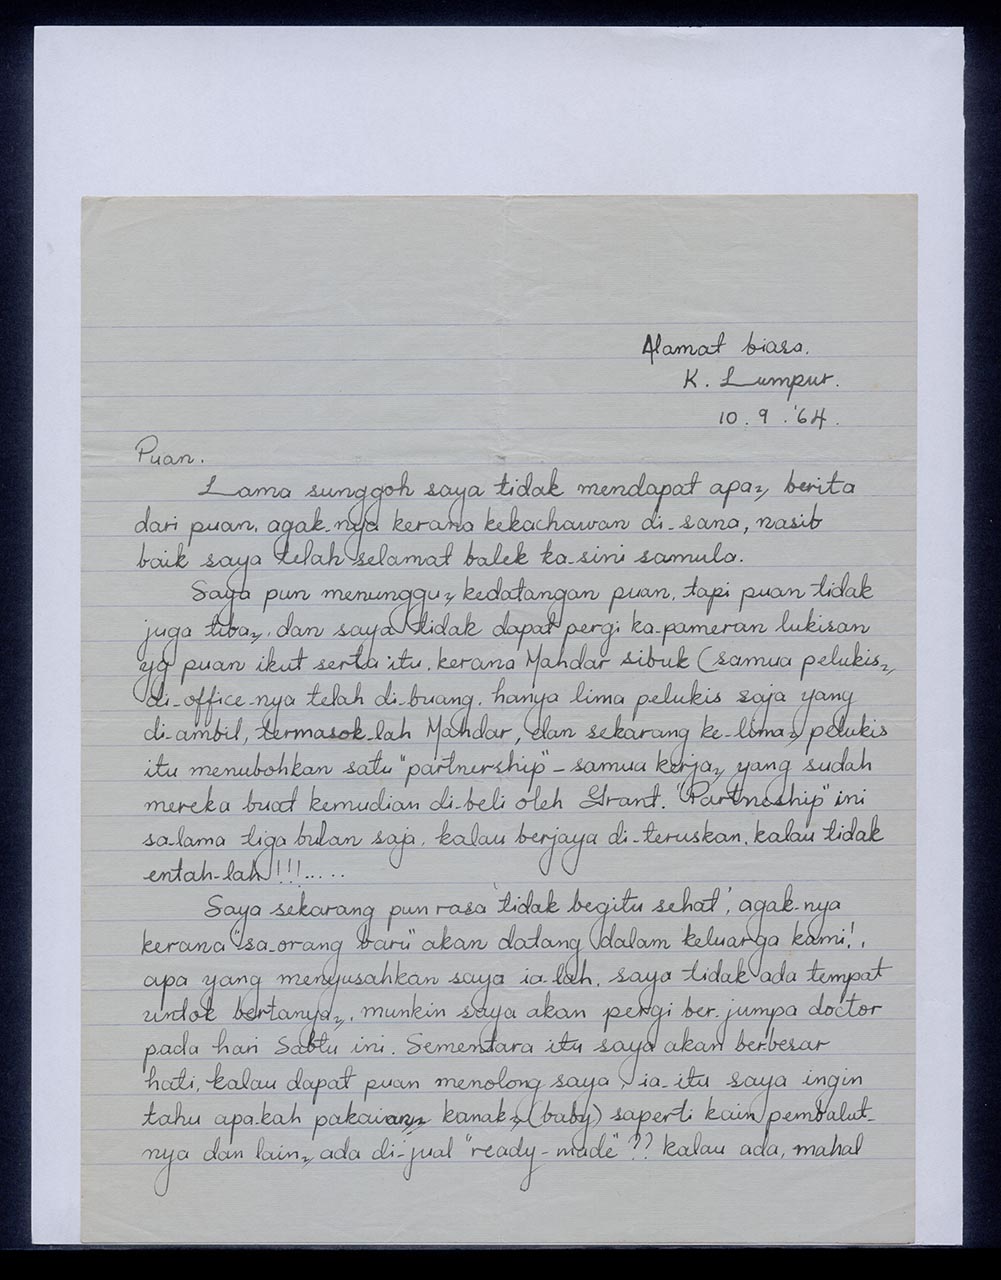 Alamat biasa.
K. Lumpur.
10. 9. '64.
Puan.
Lama sunggoh saya tidak mendapat apa2, berita
dari puan, agak-nya kerana kekachawan di-sana, nasib
baik saya telah selamat balek ka-sini samula.
Saya pun menunggu2 kedatangan puan, tapi puan tidak
juga tiba2, dan saya tidak dapat pergi ka-pameran lukisan
yg puan ikut serta itu, kerana Mahdar sibuk (samua pelukis2,
di-office-nya telah di-buang, hanya lima pelukis saja yang
di-ambil, termasok-lah Mahdar, dan sekarang ke-lima2 pelukis
itu menubohkan satu "partnership" - samua kerja2 yang sudah
mereka buat kemudian di-beli oleh Grant. "Partneship" ini
sa-lama tiga bulan saja, kalau berjaya di-teruskan, kalau tidak
entah-lah!!!.....
Saya sekarang pun rasa 'tidak begitu sehat', agak-nya
kerana "sa-orang baru" akan datang dalam keluarga kami!,
apa yang menyusahkan saya ia-lah, saya tidak ada tempat
untok bertanya2, munkin saya akan pergi ber-jumpa doctor
pada hari Sabtu ini. Sementara itu saya akan berbesar
hati, kalau dapat puan menolong saya, ia-itu saya ingin
tahu apa-kah pakaian2 kanak2 (baby) saperti kain pembalut-
nya dan lain2 ada di-jual "ready-made"?? kalau ada, mahal